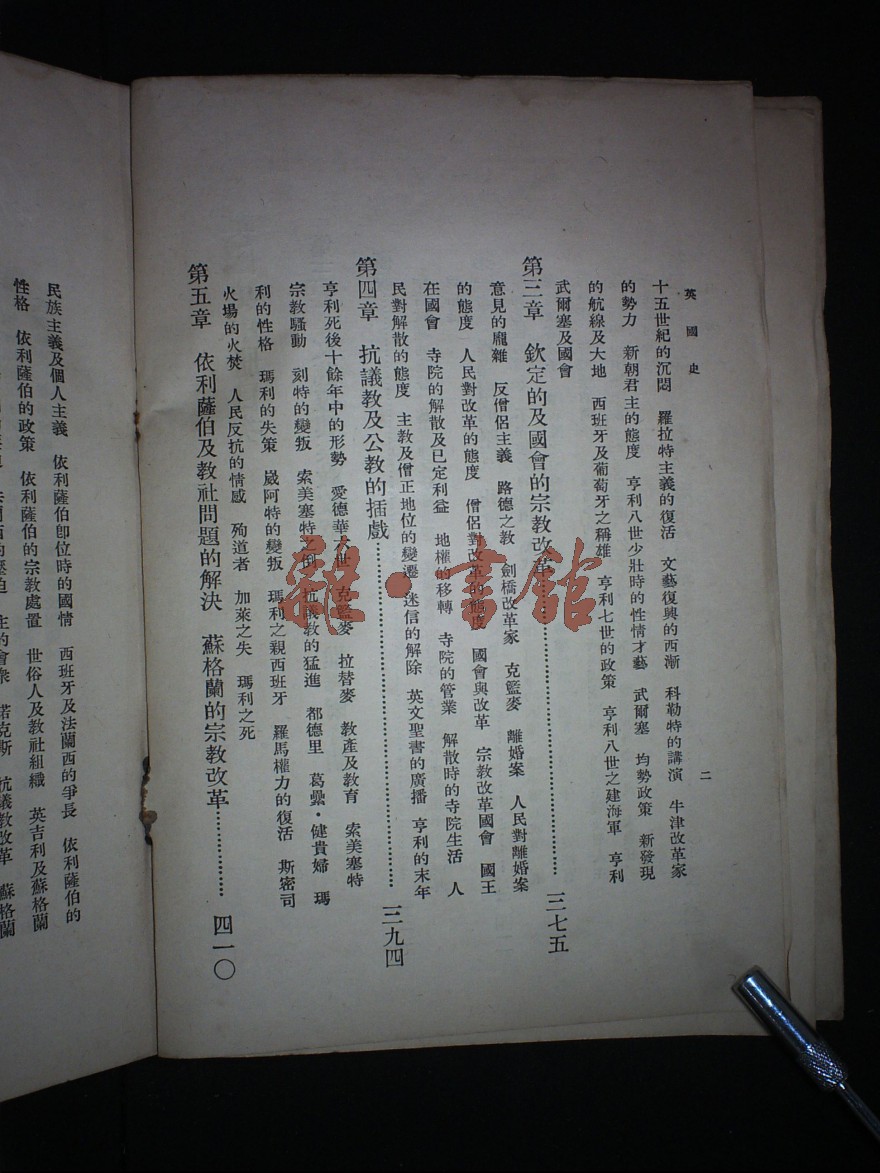 英國史
二
十五世紀的沉悶 羅拉特主義的復活 文藝復興的西漸 科勒特的講演 牛津改革家
的勢力 新朝君主的態度 亨利八世少壯時的性情才藝 武爾塞 均勢政策 新發現
的航線及大地 西班牙及葡萄牙之稱雄 亨利七世的政策 亨利八世之建海軍 亨利
武爾塞及國會
第三章 欽定的及國會的宗教改革 三七五
意見的龐雜 反僧侶主義 路德之教 劍橋改革家 克籃麥 離婚案 人民對離婚案
的態度 人民對改革的態度 僧侶對改革的態度 國會與改革 宗教改革國會 國王
在國會 寺院的解散及已定利益 地權的移轉 寺院的管業 解散時的寺院生活 人
民對解散的態度 主教及僧正地位的變遷 迷信的解除 英文聖書的廣播 亨利的末年
第四章 抗議教及公教的插戲 三九四
亨利死後十餘年中的形勢 愛德華六世 克籃麥 拉替麥 教產及教育 索美塞特
宗教騷動 刻特的變叛 索美塞特之倒 抗議教的猛進 都德里 葛壘·健貴婦 瑪
利的性格 瑪利的失策 崴阿特的變叛 瑪利之親西班牙 羅馬權力的復活 斯密司
火場的火焚 人民反抗的情感 殉道者 加萊之失 瑪利之死
第五章 依利薩伯及教社問題的解決 蘇格蘭的宗教改革 四一〇
民族主義及個人主義 依利薩伯卽位時的國情 西班牙及法蘭西的爭長 依利薩伯的
性格 依利薩伯的政策 依利薩伯的宗教處置 世俗人及教社組織 英吉利及蘇格蘭
主的會衆 諾克斯 抗議教改革 蘇格蘭
雜·書館